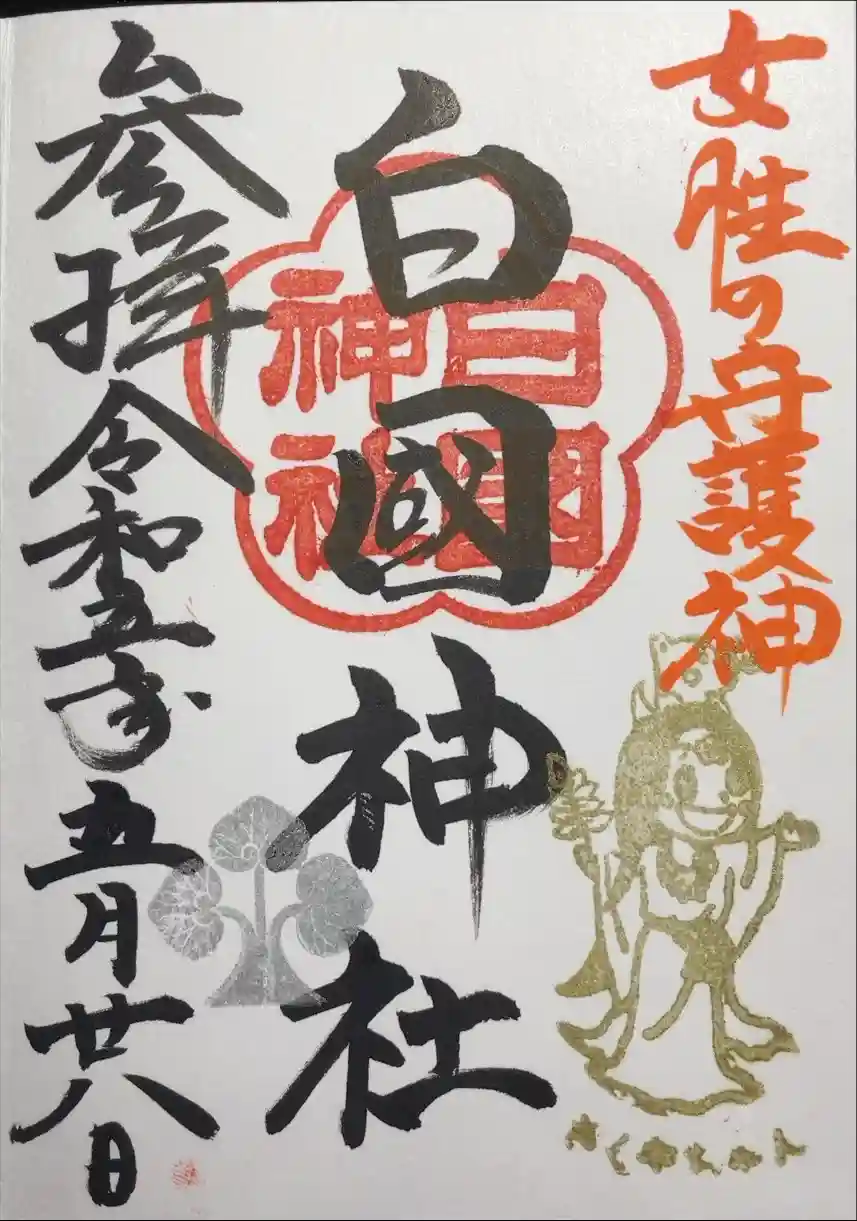 女性の守護神
白國神社
白國
神社
參拝 令和五年五月廿八日
さくやちゃん